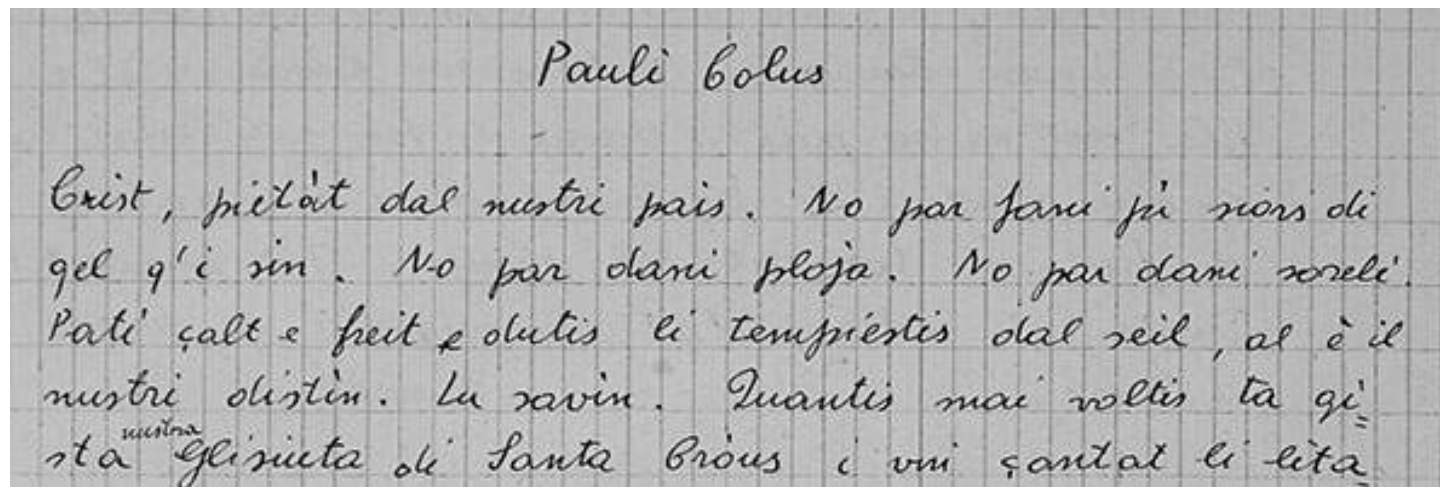 Pauli Colus
Crist, pietàt dal nustri pais. No par fani pì siors di
qel q'i sin. No par dani ploja. No par dani soreli.
Patì çalt e freit e dutis li tempiestis dal seil, al è il
nustri distìn. Lu savìn. Quantis mai voltis ta qì=
sta nustra Glisiuta di Santa Cròus i vin çantat li lita=